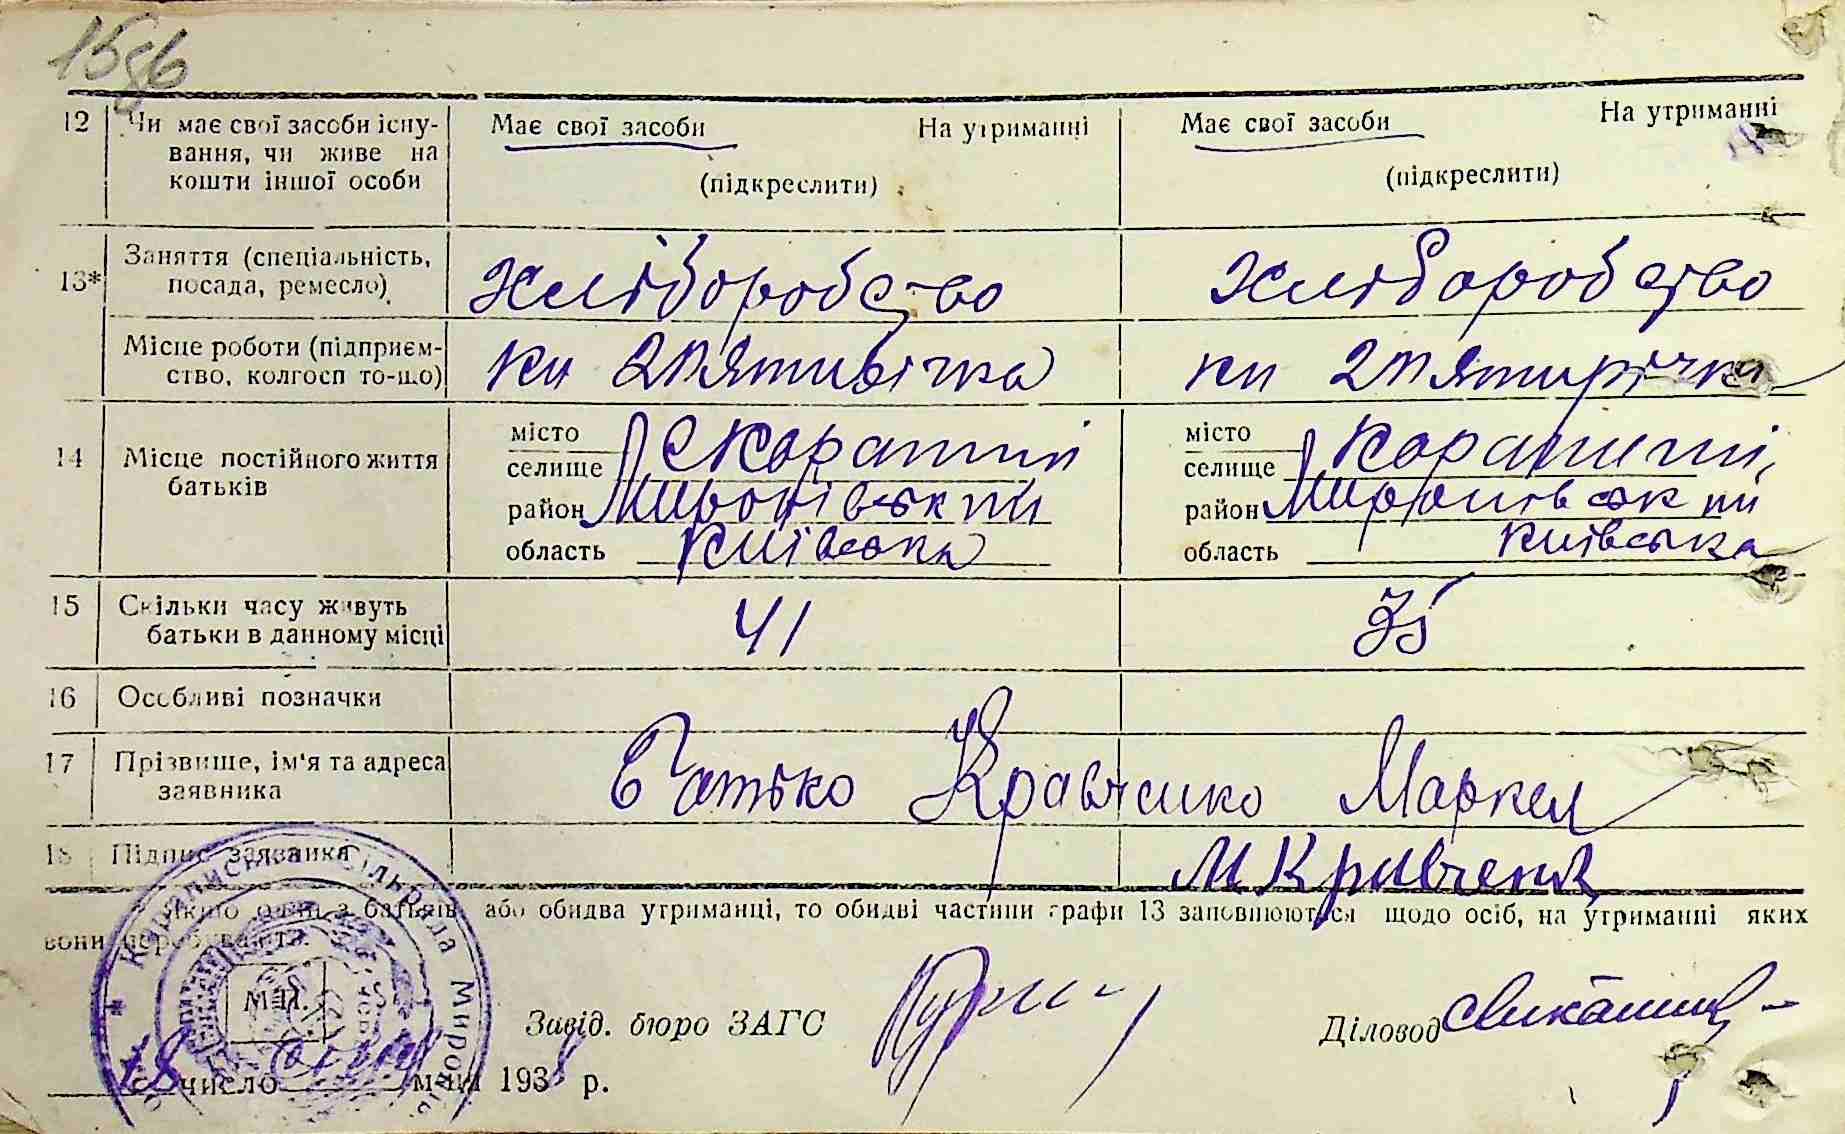 1586
12 Чи має свої засоби існу- Має свої засоби На утриманні Має свої засоби На утриманні
вання, чи живе на
кошти іншої особи (підкреслити) (підкреслити)
13* Заняття (спеціальність,
посада, ремесло) хліборобство хліборобство
Місце роботи (підприєм-
ство, колгосп то-що) кп 2 пятивічка кп 2 пятирічка
14 Місце постійного життя
батьків
місто місто
селище с Карапиші селище Карапиші
район Миронівський район Миронівський
область Київська область Київська
15 Скільки часу живуть
батьки в данному місці 41 35
16 Особливі позначки
17 Прізвище, ім'я та адреса
заявника Батько Кравченко Маркел
18 Підпис заявника М Кравченк
* Якщо один з батьків або обидва утриманці, то обидві частини графи 13 заповнюються щодо осіб, на утриманні яких
вони перебувають.
М.П.
Завід. бюро ЗАГС Діловод
18 число м-ця 193 р.
Караписька сільрада Миронів